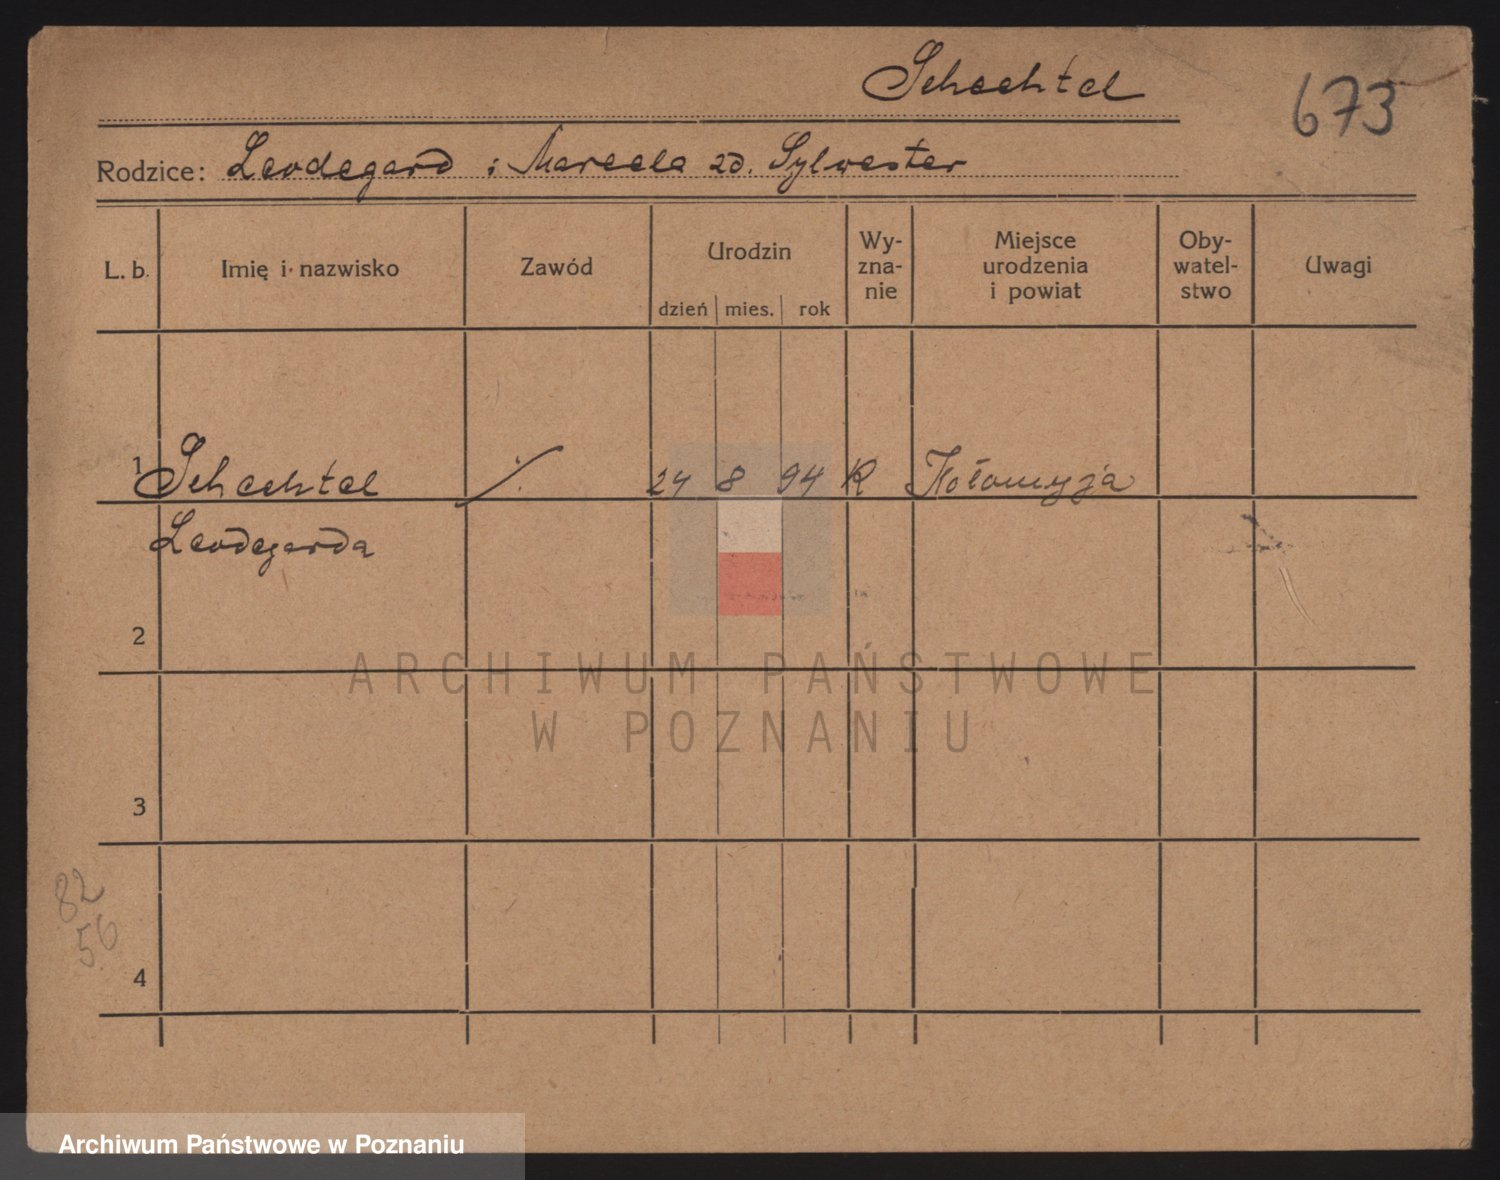 Schechtel
673
Rodzice: Leodegard i Marcela zd. Sylwester
L. b. Imię i nazwisko Zawód Urodzin dzień mies. rok Wy-zna-nie Miejsce urodzenia i powiat Oby-watel-stwo Uwagi
1 Schechtel ./. 24 8 94 R Kołomyja
Leodegarda
2
ARCHIWUM PAŃSTWOWE
W POZNANIU
3
82
56
4
Archiwum Państwowe w Poznaniu